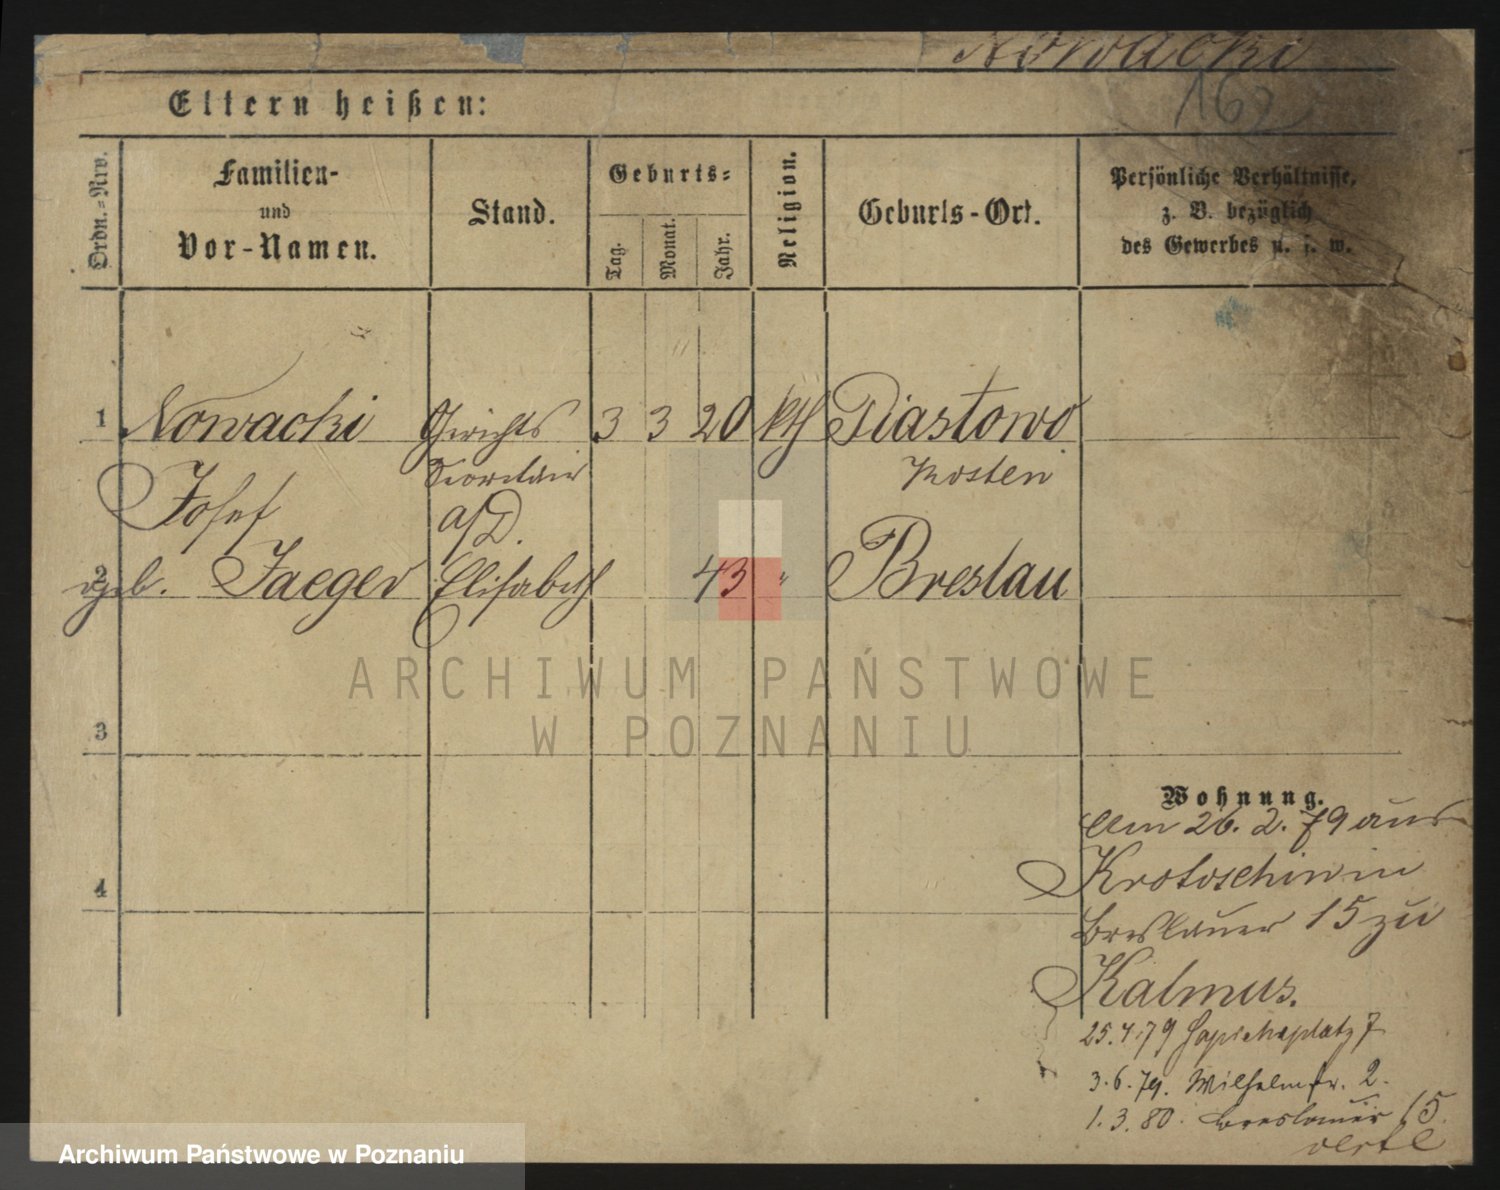 Nowacki
162
Eltern heißen:
Ordn.=Nrv.
Familien-
und
Vor-Namen.
Stand.
Geburts=
Tag.
Monat.
Jahr.
Religion.
Geburts-Ort.
Persönliche Verhältnisse,
z. B. bezüglich
des Gewerbes u. s. w.
1 Nowacki Gerichts 3 3 20 kth Piastowo
Secretair Kosten
Josef a/D.
2 geb. Jaeger Elisabeth 43 " Breslau
ARCHIWUM PAŃSTWOWE
W POZNANIU
3
Wohnung.
Am 26. 2. 79 aus
4 Krotoschin in
Breslauer 15 zu
Kalmus.
25.4.79 Sapiehaplatz 7
3.6.79. Wilhelmstr. 2.
1.3.80. Breslauer 15.
Archiwum Państwowe w Poznaniu